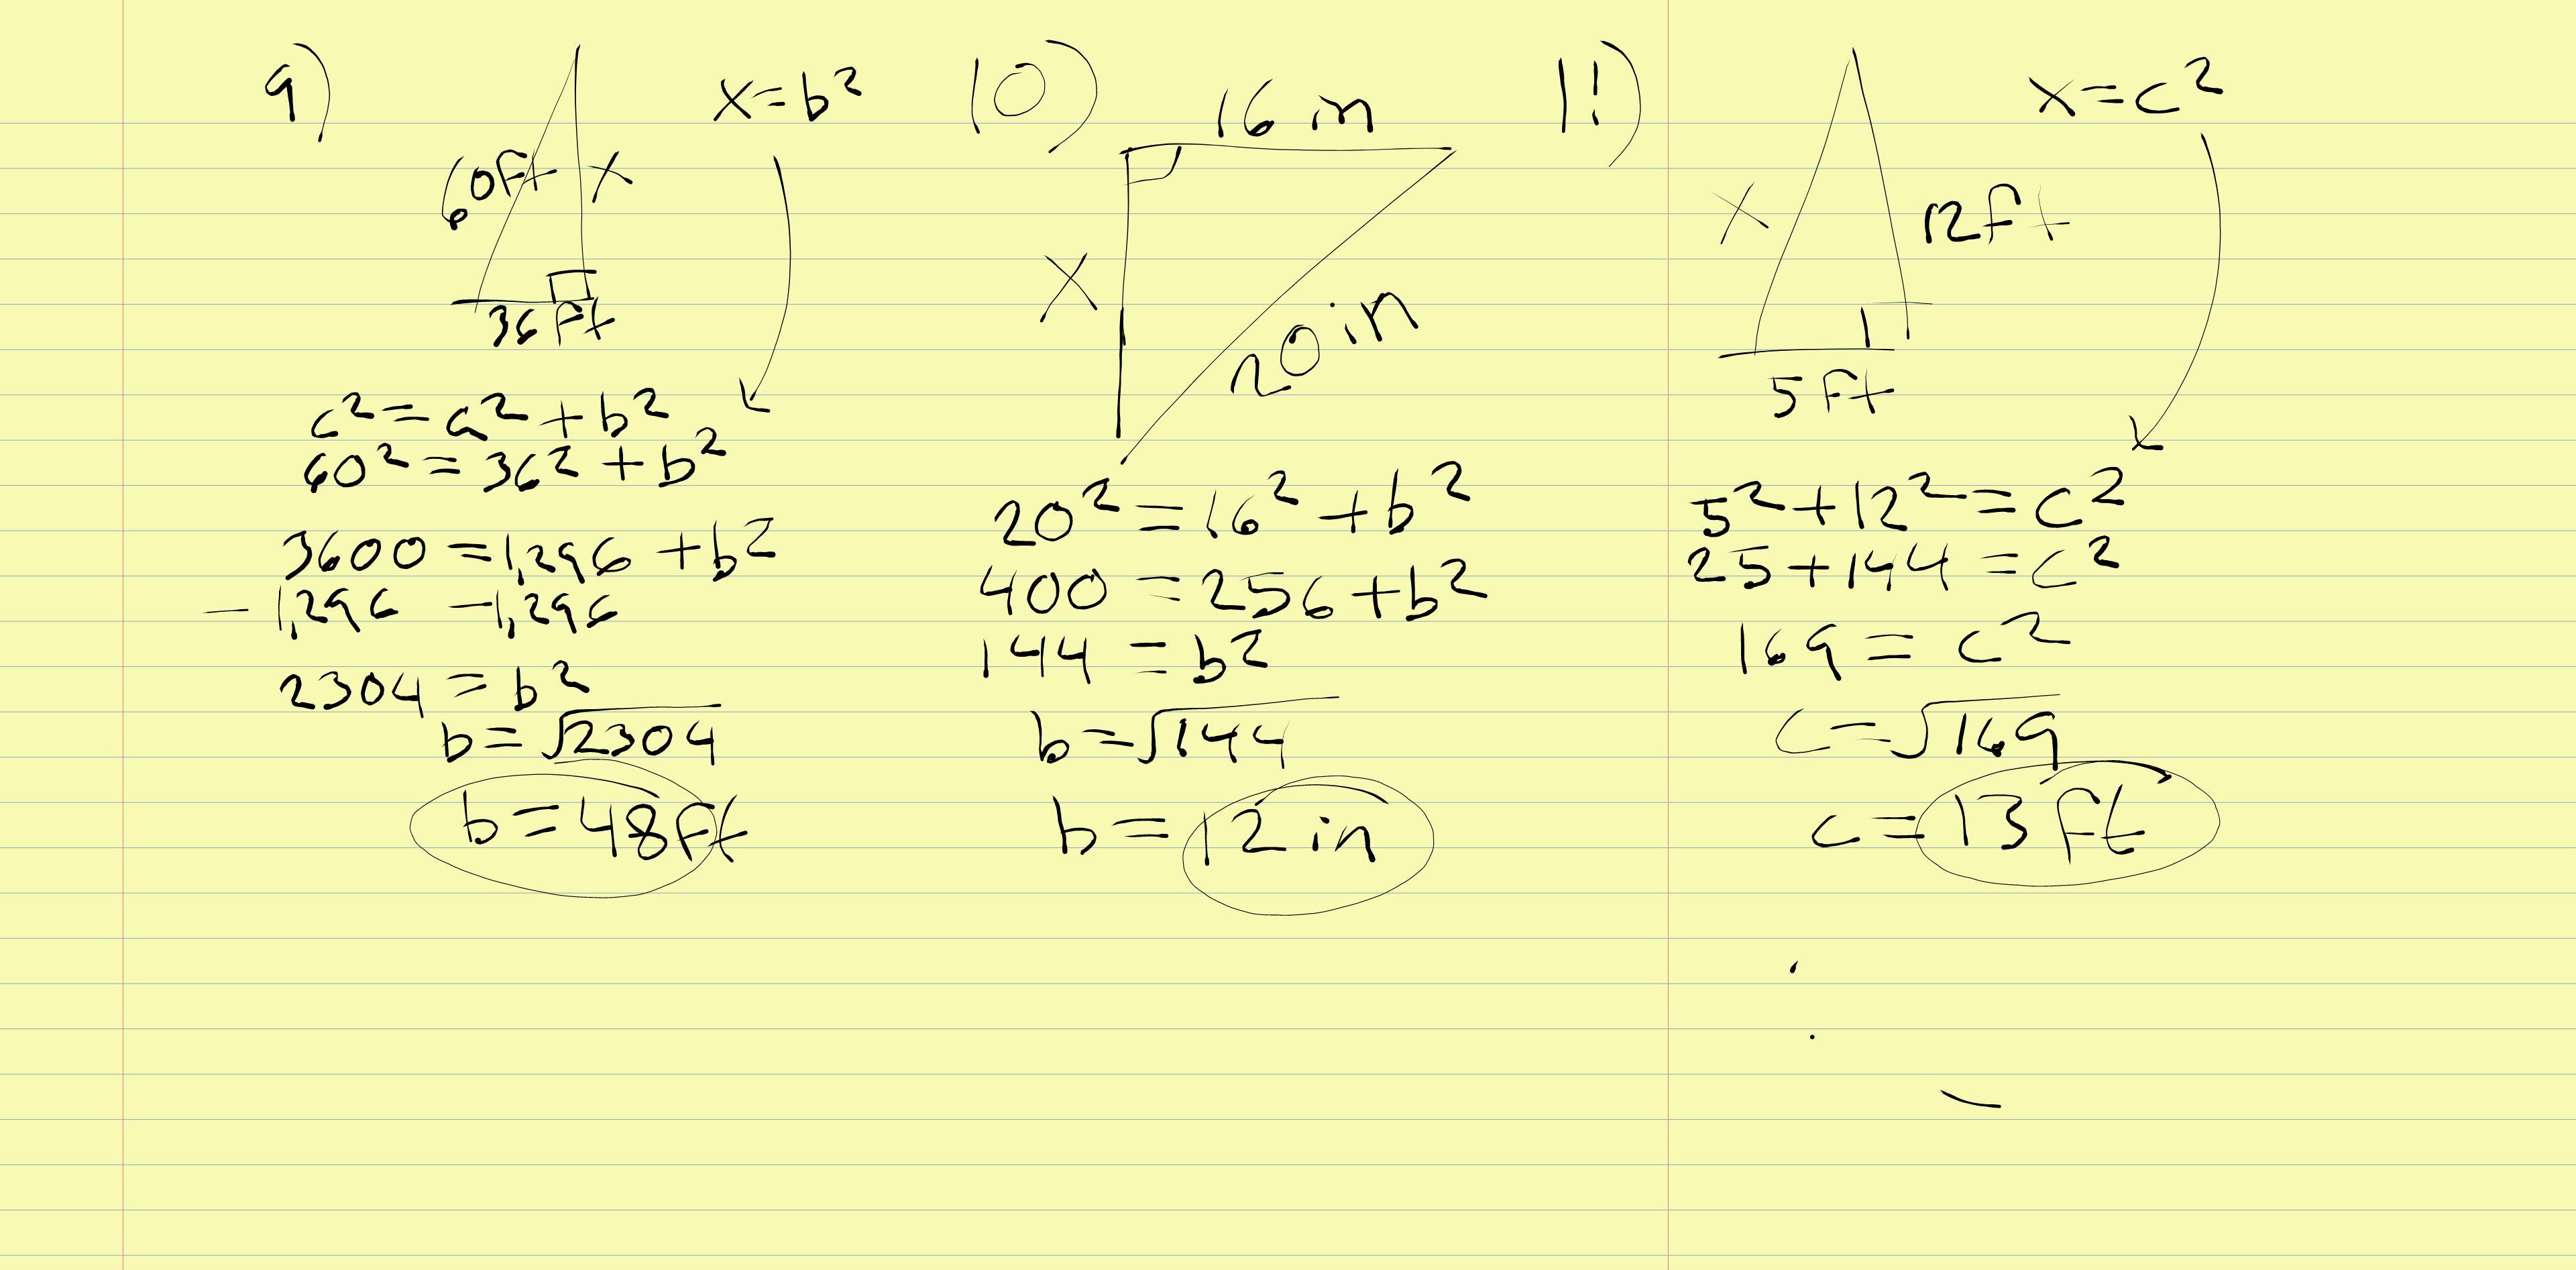 9)
60ft
x
36 ft
x=b²
c²=a²+b²
60²=36²+b²
3600=1,296+b²
-1,296 -1,296
2304=b²
b=√2304
b=48ft
10)
16 in
x
20 in
20²=16²+b²
400=256+b²
144=b²
b=√144
b=12 in
11)
x
12ft
5 ft
x=c²
5²+12²=c²
25+144=c²
169=c²
c=√169
c=13 ft